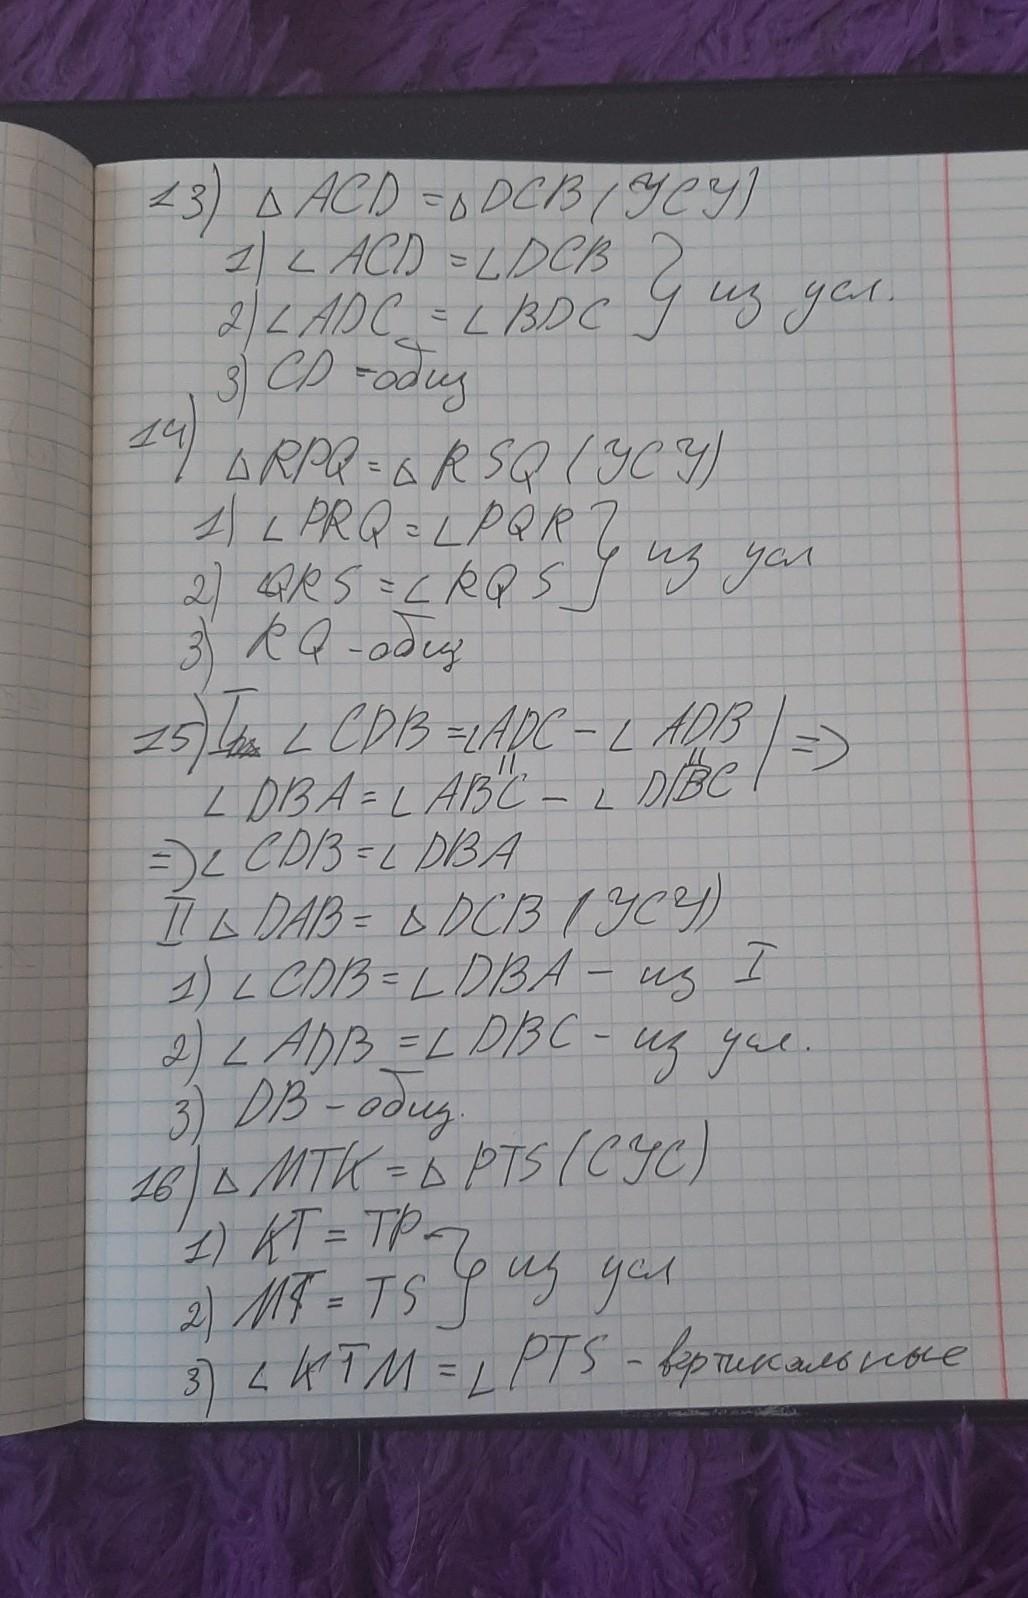 13) △ ACD = △ DCB (УСУ)
1) ∠ ACD = ∠ DCB } из усл.
2) ∠ ADC = ∠ BDC
3) CD = общ
14) △ RPQ = △ RSQ (УСУ)
1) ∠ PRQ = ∠ PQR } из усл
2) ∠QRS = ∠ RQS
3) RQ - общ
15) I ∠ CDB = ∠ADC - ∠ ADB | =>
∠ DBA = ∠ ABC - ∠ DBC
=> ∠ CDB = ∠ DBA
II △ DAB = △ DCB (УСУ)
1) ∠ CDB = ∠ DBA - из I
2) ∠ ADB = ∠ DBC - из усл.
3) DB - общ.
16) △ MTK = △ PTS (СУС)
1) KT = TP } из усл
2) MT = TS
3) ∠ KTM = ∠ PTS - вертикальные